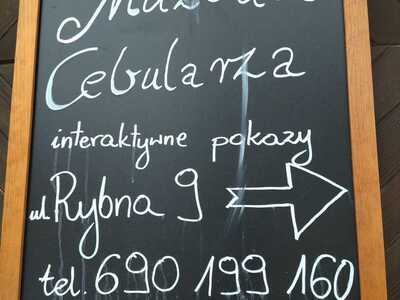 Muzeum
Cebularza
interaktywne pokazy
ul. Rybna 9
tel. 690 199 160